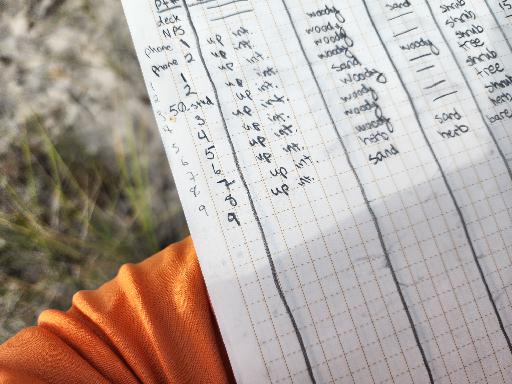 deck
NPS
phone 1 up int. woody sand shrub
phone 2 up int. woody shrub
1 up int. woody shrub
2 up int. woody woody tree
50.std up int. sand shrub
3 up int. woody tree
4 up int. woody shrub
5 up int. woody herb
6 up int. woody sand bare
7 up int. herb herb
8 up int. sand
9 up int.